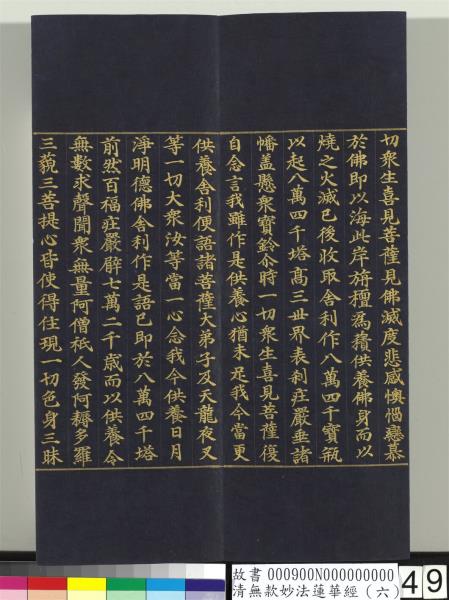 切眾生喜見菩薩見佛滅度悲感懊惱戀慕
於佛即以海此岸旃檀為𧂐供養佛身而以
燒之火滅已後收取舍利作八萬四千寶瓶
以起八萬四千塔高三世界表剎莊嚴垂諸
幡蓋懸眾寶鈴尒時一切眾生喜見菩薩復
自念言我雖作是供養心猶未足我今當更
供養舍利便語諸菩薩大弟子及天龍夜叉
等一切大眾汝等當一心念我今供養日月
淨明德佛舍利作是語已即於八萬四千塔
前然百福莊嚴臂七萬二千歲而以供養令
無數求聲聞眾無量阿僧祇人發阿耨多羅
三藐三菩提心皆使得住現一切色身三昧
故書 000900N000000000
清無款妙法蓮華經(六)
49